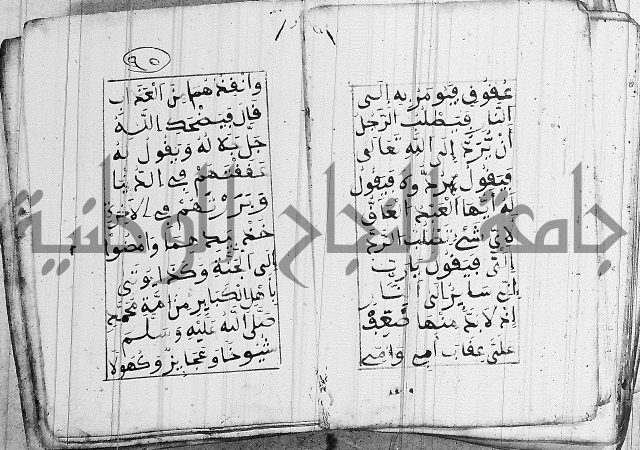 عقوق فيومر به إلى
النار فيطلب الرجل
أن يرد إلى الله تعالى
فيقول فيقول
له أيها العبد العاق
لأي شيء تطلب الرد
إلي فيقول يا رب
إني ساير إلى النار
إذ لا بد منها فضعف
علي عقاب أبي وامي
٩٥
وانقذهم من العذاب
قال فيضحك الله
جل جلاله ويقول له
عققتهم في الدنيا
وبررتهم في الاخرة
خذ بيدهما وامضوا
إلى الجنة وكذا يوتى
بأهل الكباير من امة محمد
صلى الله عليه وسلم
شيوخا وعجايز وكهولا
جامعة النجاح الوطنية